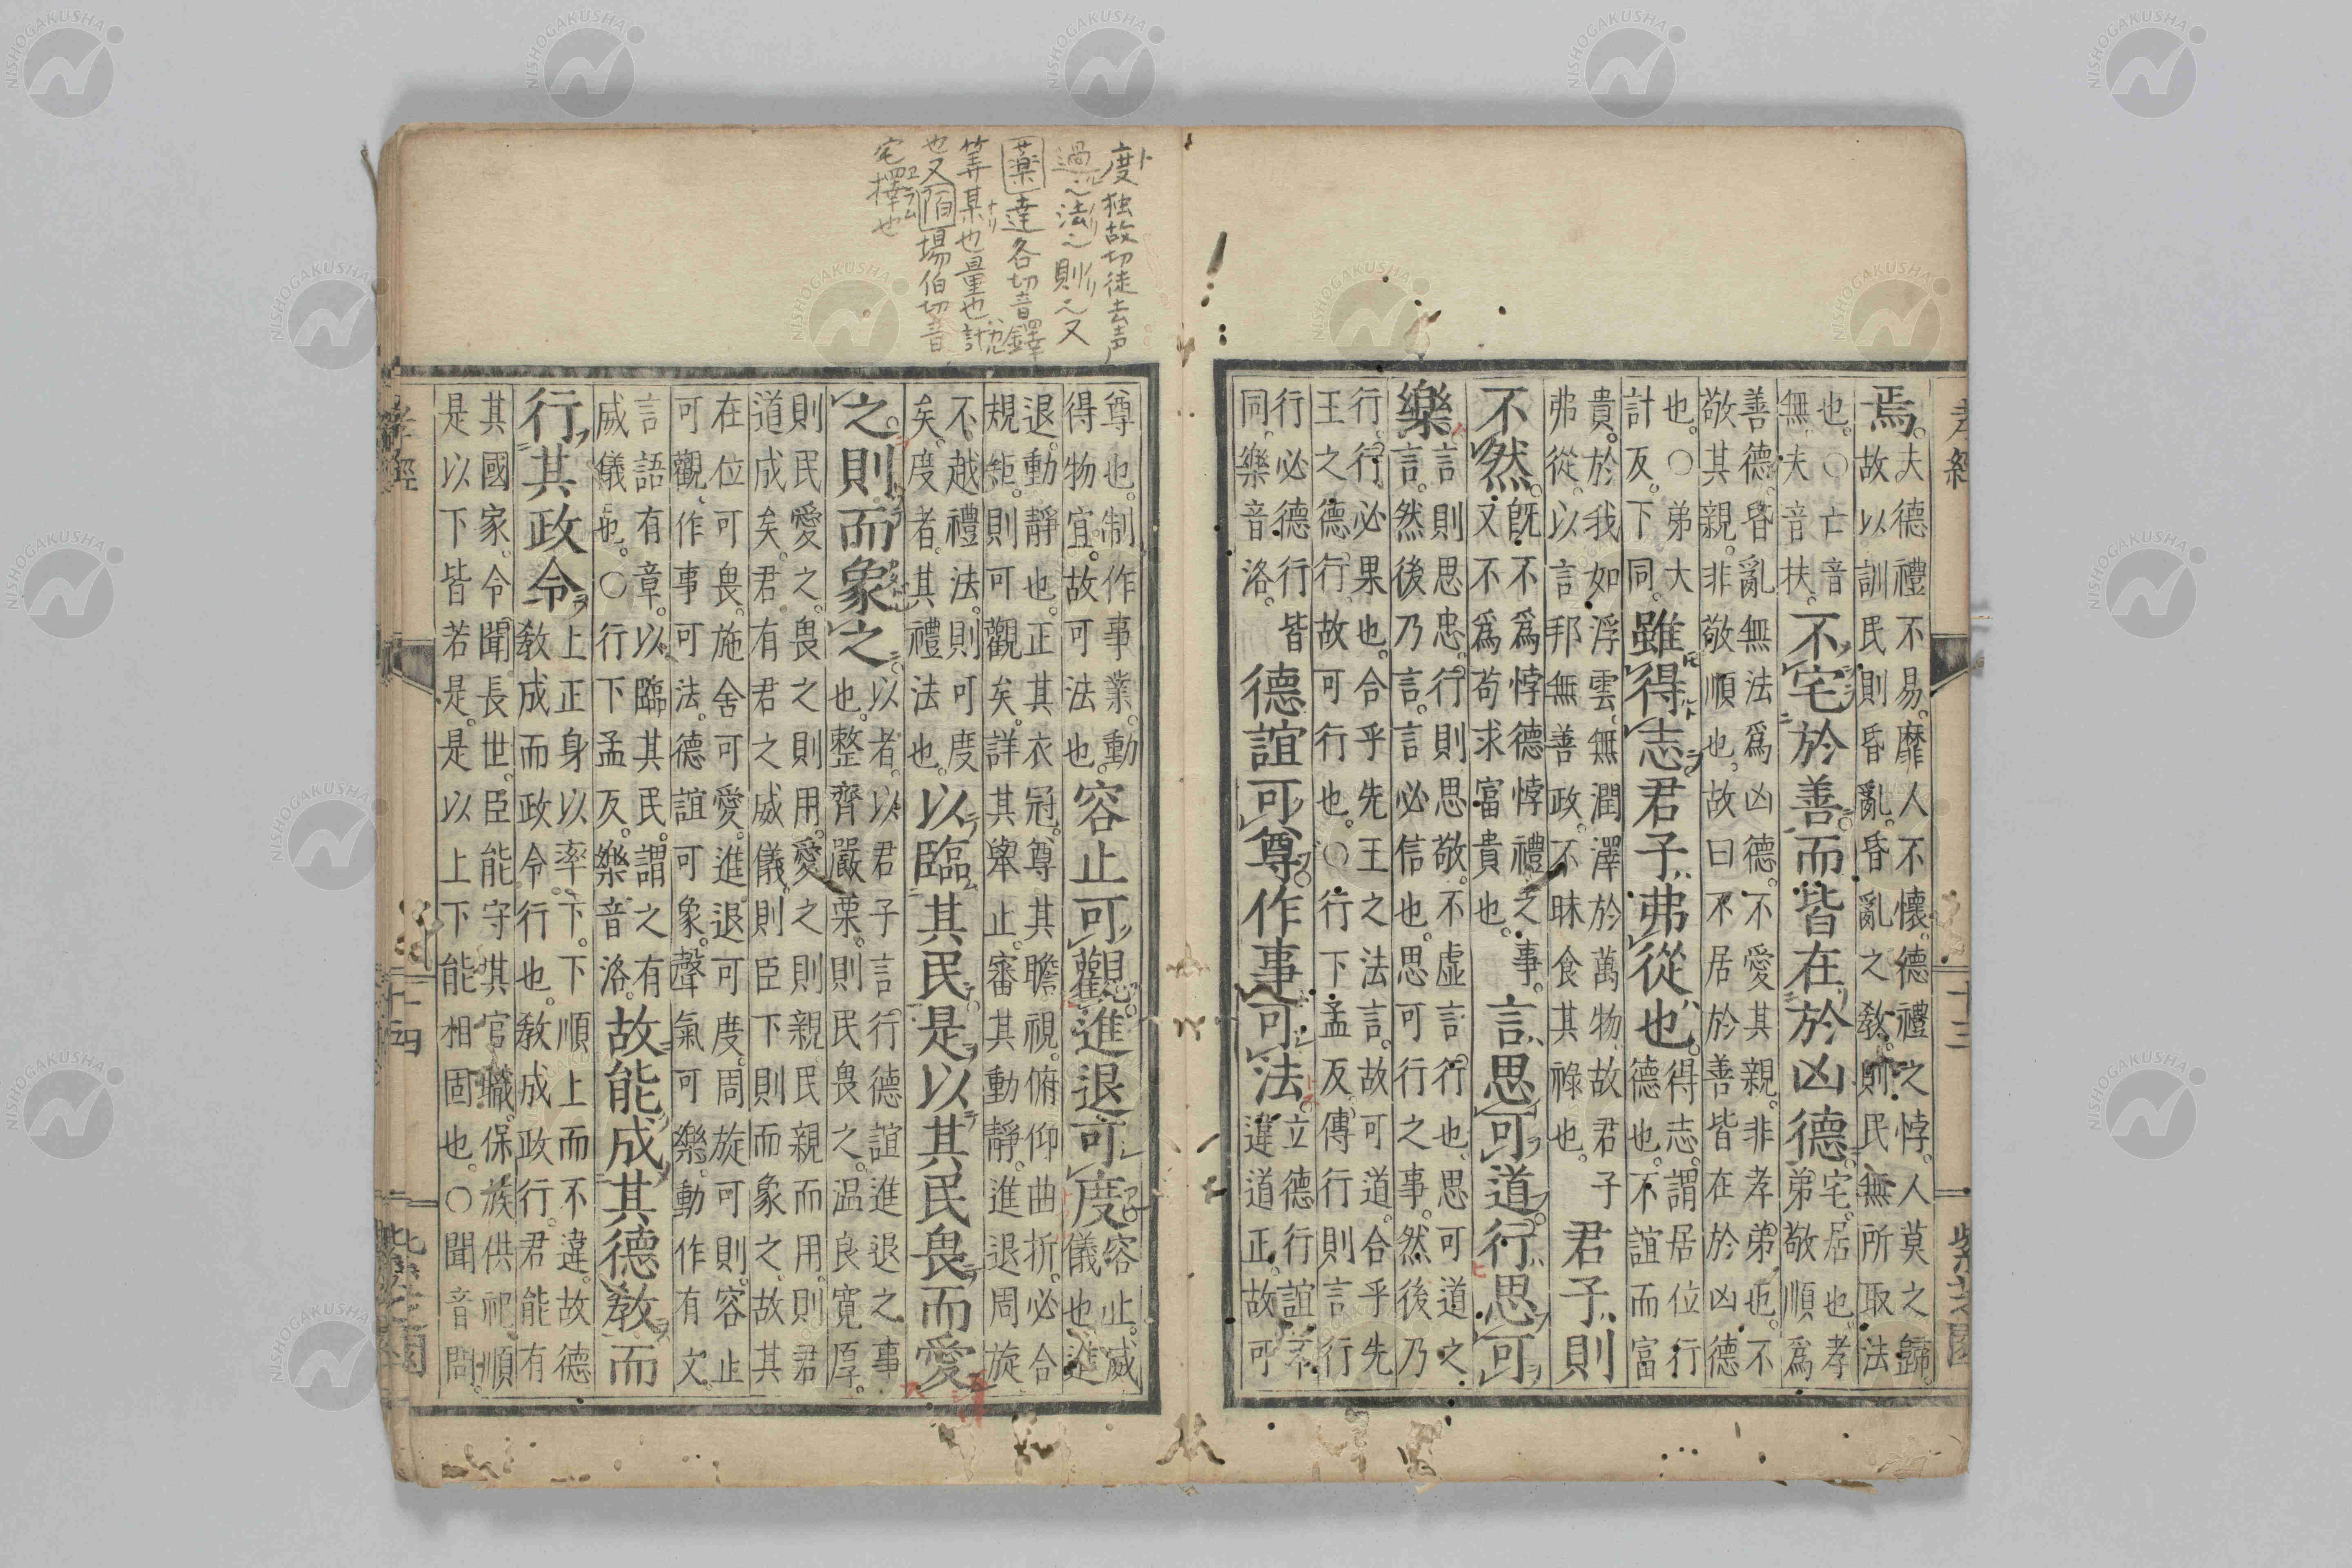 孝經
十三
紫芝園
焉。夫德禮不易。靡人不懷。德禮之悖。人莫之歸。
故以訓民則昏亂。昏亂之教。則民無所取法
也。○亡音
無。夫音扶。不宅於善。而皆在於凶德。宅。居也。孝
弟敬順爲
善德。昏亂無法爲凶德。不愛其親。非孝弟也。不
敬其親。非敬順也。故曰不居於善。皆在於凶德
也。○弟大
計反。下同。雖得志。君子弗從也。得志。謂居位行
德也。不誼而富
貴。於我如浮雲。無潤澤於萬物。故君子
弗從。以言邦無善政。不昧食其祿也。君子則
不然。既不爲悖德悖禮之事。
又不爲苟求富貴也。言思可道。行思可
樂。言則思忠。行則思敬。不虛言行也。思可道之
言。然後乃言。言必信也。思可行之事。然後乃
行。行必果也。合乎先王之法言。故可道。合乎先
王之德行。故可行也。○行下孟反。傳行則言行
行必德行行皆
同。樂音洛。德誼可尊。作事可法。立德行誼。不
違道正。故可
尊也。制作事業。動
得物宜。故可法也。容止可觀。進退可度。容止。威
儀也。進
退。動靜也。正其衣冠。尊其瞻視。俯仰曲折。必合
規矩。則可觀矣。詳其舉止。審其動靜。進退周旋
不越禮法。則可度
矣。度者。其禮法也。以臨其民。是以其民畏而愛
之。則而象之。以者。以君子言行德誼進退之事
也。整齊嚴栗。則民畏之。溫良寬厚。
則民愛之。畏之則用。愛之則親。民親而用。則君
道成矣。君有君之威儀。則臣下則而象之。故其
在位可畏。施舍可愛。進退可度。周旋可則。容止
可觀。作事可法。德誼可象。聲氣可樂。動作有文。
言語有章。以臨其民。謂之有
威儀也。○行下孟反。樂音洛。故能成其德教。而
行其政令。上正身以率下。下順上而不違。故德
教成而政令行也。教成政行。君能有
其國家。令聞長世。臣能守其官職。保族供祀。順
是以下皆若是。是以上下能相固也。○聞音問。
孝經
十四
紫芝園
度 独故切徒去声
過之法之則之又
薬 達各切音鐸
筭某也量也計
也又陌 場伯切音
宅擇也
NISHOGAKUSHA